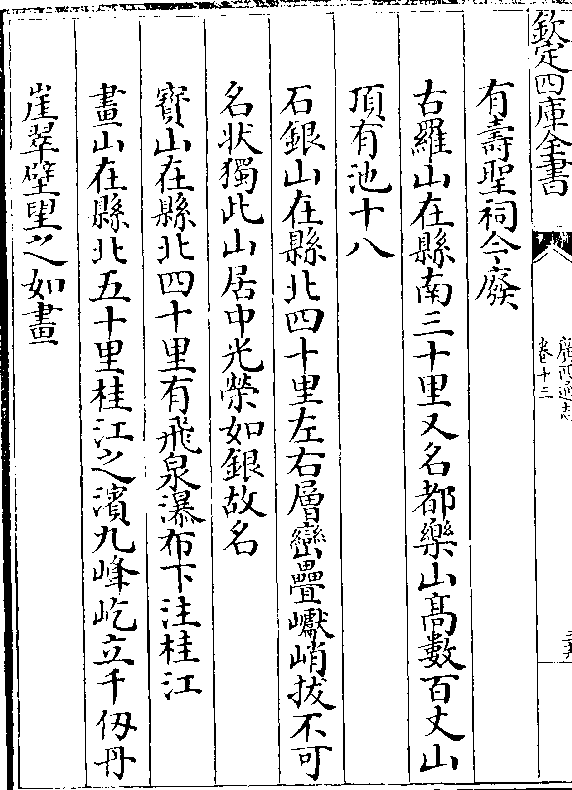 欽定四庫全書
廣西通志
卷十三
有壽聖祠今廢
古羅山在縣南三十里又名都樂山髙數百丈山
頂有池十八
石銀山在縣北四十里左右層巒疊巘峭拔不可
名状獨此山居中光榮如銀故名
寳山在縣北四十里有飛泉瀑布下注桂江
畫山在縣北五十里桂江之濱九峰屹立千仭丹
崖翠壁望之如畫